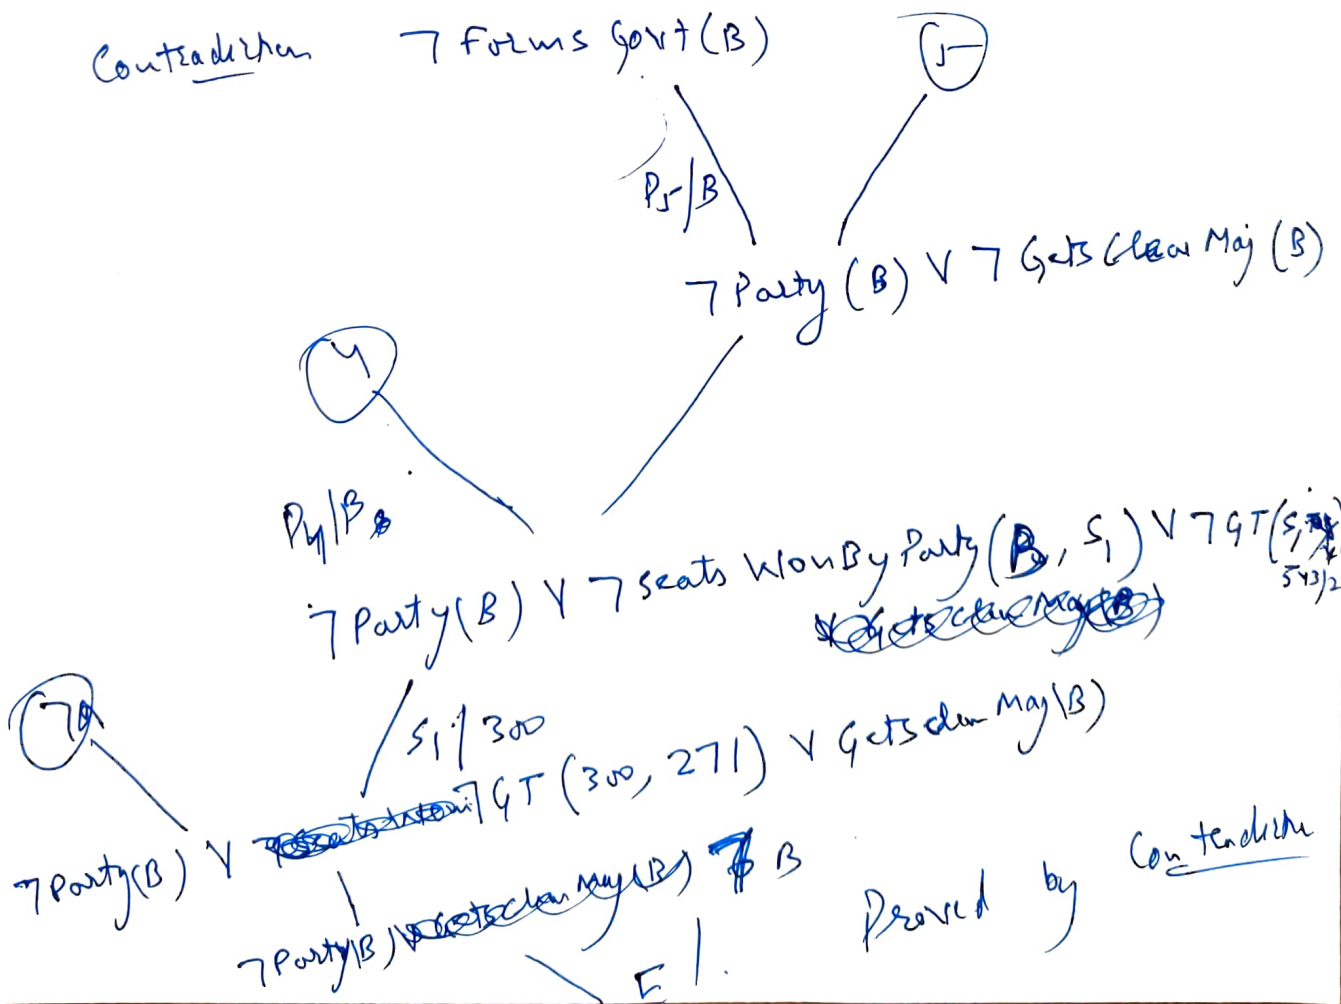 Contradiction ¬ Forms Govt (B) 5
P5/B
¬ Party (B) V ¬ Gets Clear Maj (B)
4
P4/B
¬ Party(B) V ¬ seats Won By Party (B, S1) V ¬ GT(S1,
543/2
7a
S1/300
¬Party(B) V ¬GT (300, 271) V Gets clear Maj(B)
¬Party(B) B
Proved by Contradiction